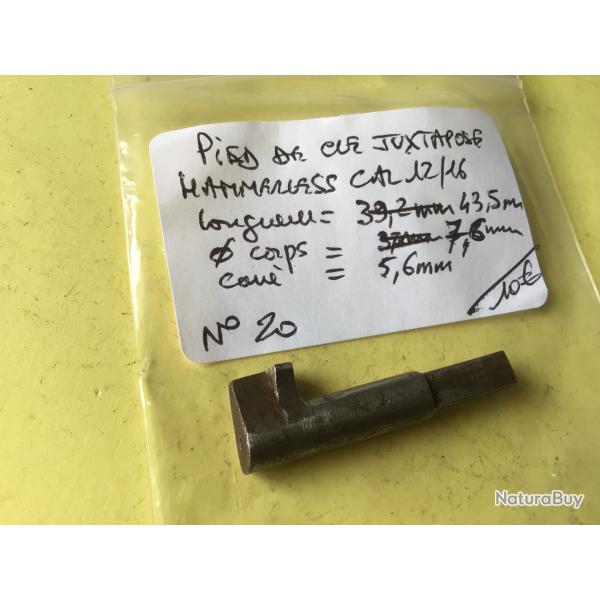 PiED DE CLE JUXTAPOSE
HAMMERLESS CAL 12/16
longueur = 39,2mm 43,5m
Ø corps = 7,6mm
carré = 5,6mm
10€
N° 20
NaturaBuy